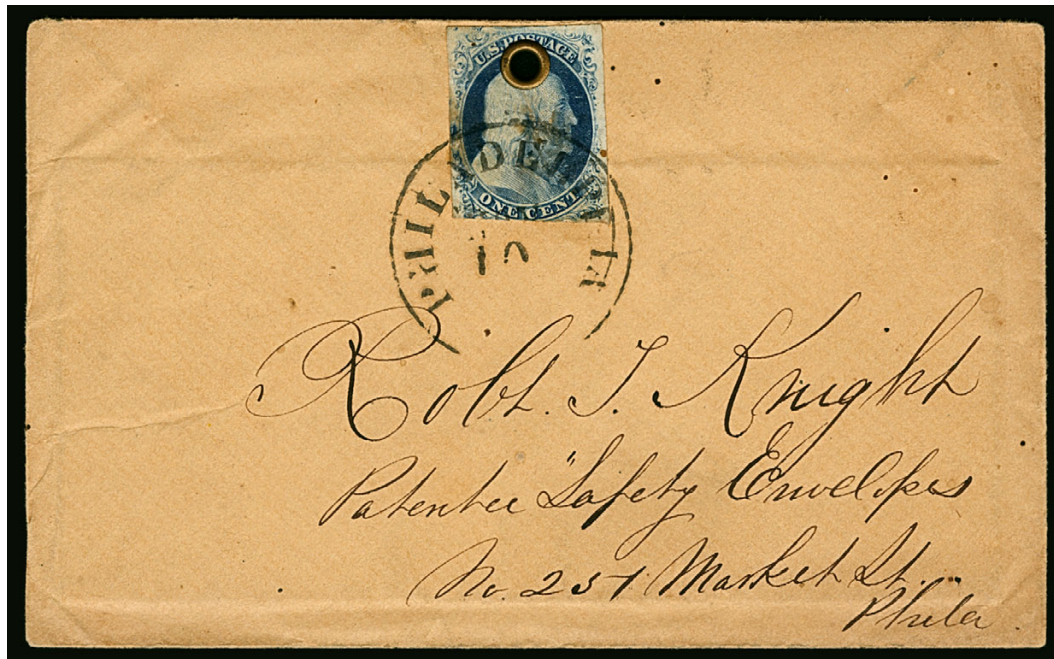 U.S. POSTAGE
ONE CENT
PHILADELPHIA
10
Robt. T. Knight
Patentee "Safety Envelopes
No. 251 Market St.
Phila.